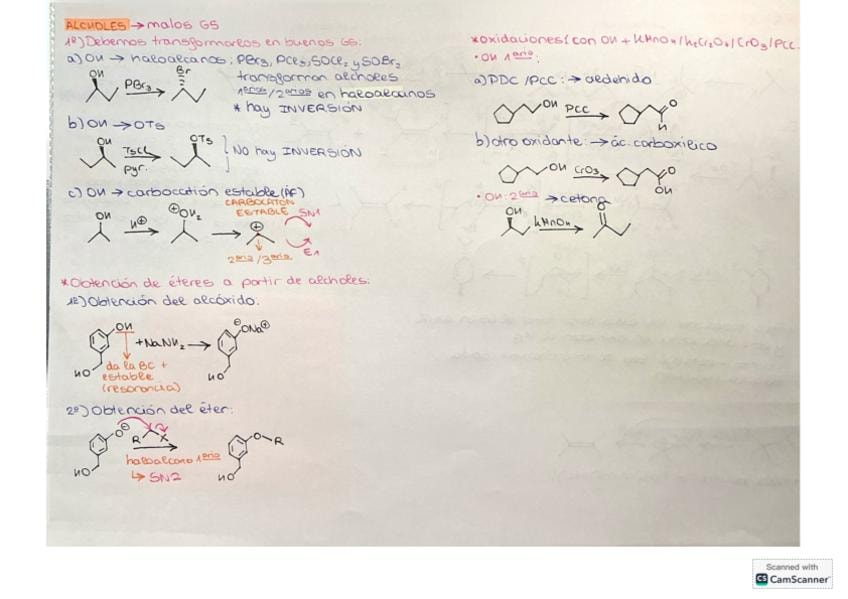 ALCHOLES → malos GS
1º) Debemos transformarlos en buenos GS:
a) OH → haloalcanos: PBr₃, PCl₃, SOCl₂ y SOBr₂
transforman alcholes
1arios/2arios en haloalcanos
* hay INVERSIÓN
OH
PBr₃
Br
b) OH → OTs
OH
TsCl
pyr.
OTs
NO hay INVERSIÓN
c) OH → carbocatión estable (AF)
CARBOCATIÓN
ESTABLE
SN1
OH
H⊕
⊕OH₂
⊕
E1
2ario/3ario
*Obtención de éteres a partir de alcholes:
1º) Obtención del alcóxido:
OH
HO
+NaNH₂
⊖ONa⊕
HO
da la BC +
estable
(resonancia)
2º) Obtención del éter:
O⊖
R
X
HO
O-R
HO
haloalcano 1ario
↳ SN2
*oxidaciones: con OH + KMnO₄/H₂Cr₂O₄/CrO₃/PCC
• OH 1ario:
a) PDC/PCC: → aldehído
OH
PCC
O
H
b) otro oxidante: → ác. carboxílico
OH
CrO₃
O
OH
• OH: 2ario → cetona
OH
KMnO₄
O
Scanned with
CS CamScanner